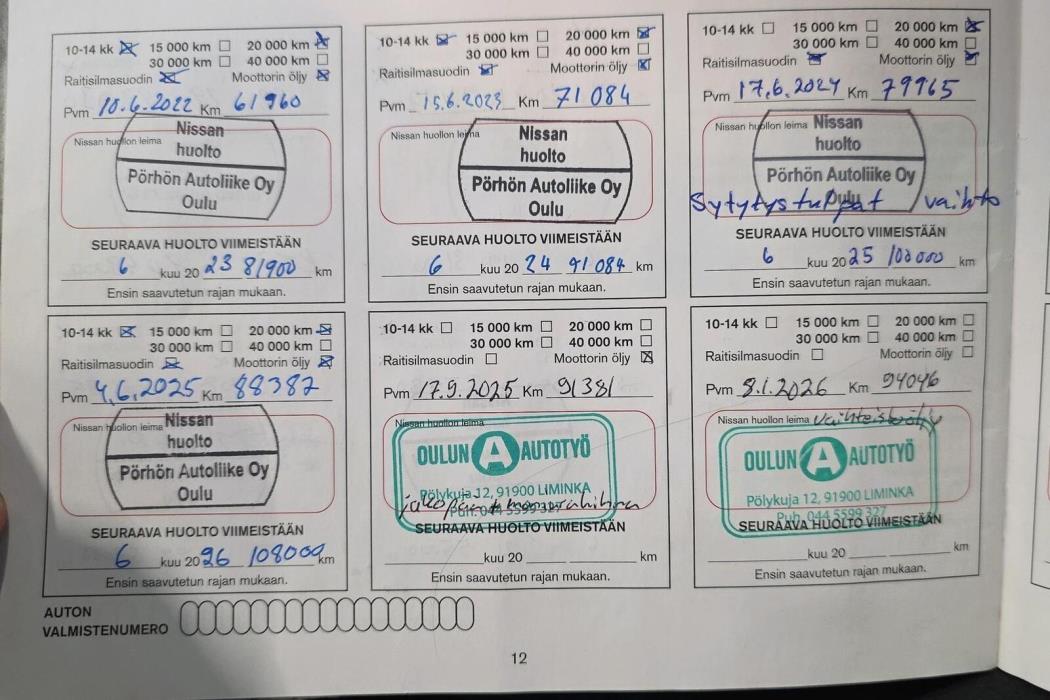 10-14 kk 15 000 km 20 000 km
30 000 km 40 000 km
Raitisilmasuodin Moottorin öljy
Pvm 10.6.2022 Km 61960
Nissan huollon leima
Nissan
huolto
Pörhön Autoliike Oy
Oulu
SEURAAVA HUOLTO VIIMEISTÄÄN
6 kuu 20 23 81900 km
Ensin saavutetun rajan mukaan.
10-14 kk 15 000 km 20 000 km
30 000 km 40 000 km
Raitisilmasuodin Moottorin öljy
Pvm 15.6.2023 Km 71 084
Nissan huollon leima
Nissan
huolto
Pörhön Autoliike Oy
Oulu
SEURAAVA HUOLTO VIIMEISTÄÄN
6 kuu 20 24 91 084 km
Ensin saavutetun rajan mukaan.
10-14 kk 15 000 km 20 000 km
30 000 km 40 000 km
Raitisilmasuodin Moottorin öljy
Pvm 17.6.2024 Km 79965
Nissan huollon leima
Nissan
huolto
Pörhön Autoliike Oy
Oulu
Sytytystulpat vaihto
SEURAAVA HUOLTO VIIMEISTÄÄN
6 kuu 20 25 100000 km
Ensin saavutetun rajan mukaan.
10-14 kk 15 000 km 20 000 km
30 000 km 40 000 km
Raitisilmasuodin Moottorin öljy
Pvm 4.6.2025 Km 88387
Nissan huollon leima
Nissan
huolto
Pörhön Autoliike Oy
Oulu
SEURAAVA HUOLTO VIIMEISTÄÄN
6 kuu 20 26 108000 km
Ensin saavutetun rajan mukaan.
10-14 kk 15 000 km 20 000 km
30 000 km 40 000 km
Raitisilmasuodin Moottorin öljy
Pvm 17.9.2025 Km 91381
Nissan huollon leima
OULUN A AUTOTYÖ
Pölykuja 12, 91900 LIMINKA
Puh. 044 5599 327
SEURAAVA HUOLTO VIIMEISTÄÄN
kuu 20 km
Ensin saavutetun rajan mukaan.
10-14 kk 15 000 km 20 000 km
30 000 km 40 000 km
Raitisilmasuodin Moottorin öljy
Pvm 8.1.2026 Km 94046
Nissan huollon leima vaihteistoöljy
OULUN A AUTOTYÖ
Pölykuja 12, 91900 LIMINKA
Puh. 044 5599 327
SEURAAVA HUOLTO VIIMEISTÄÄN
kuu 20 km
Ensin saavutetun rajan mukaan.
AUTON
VALMISTENUMERO
12